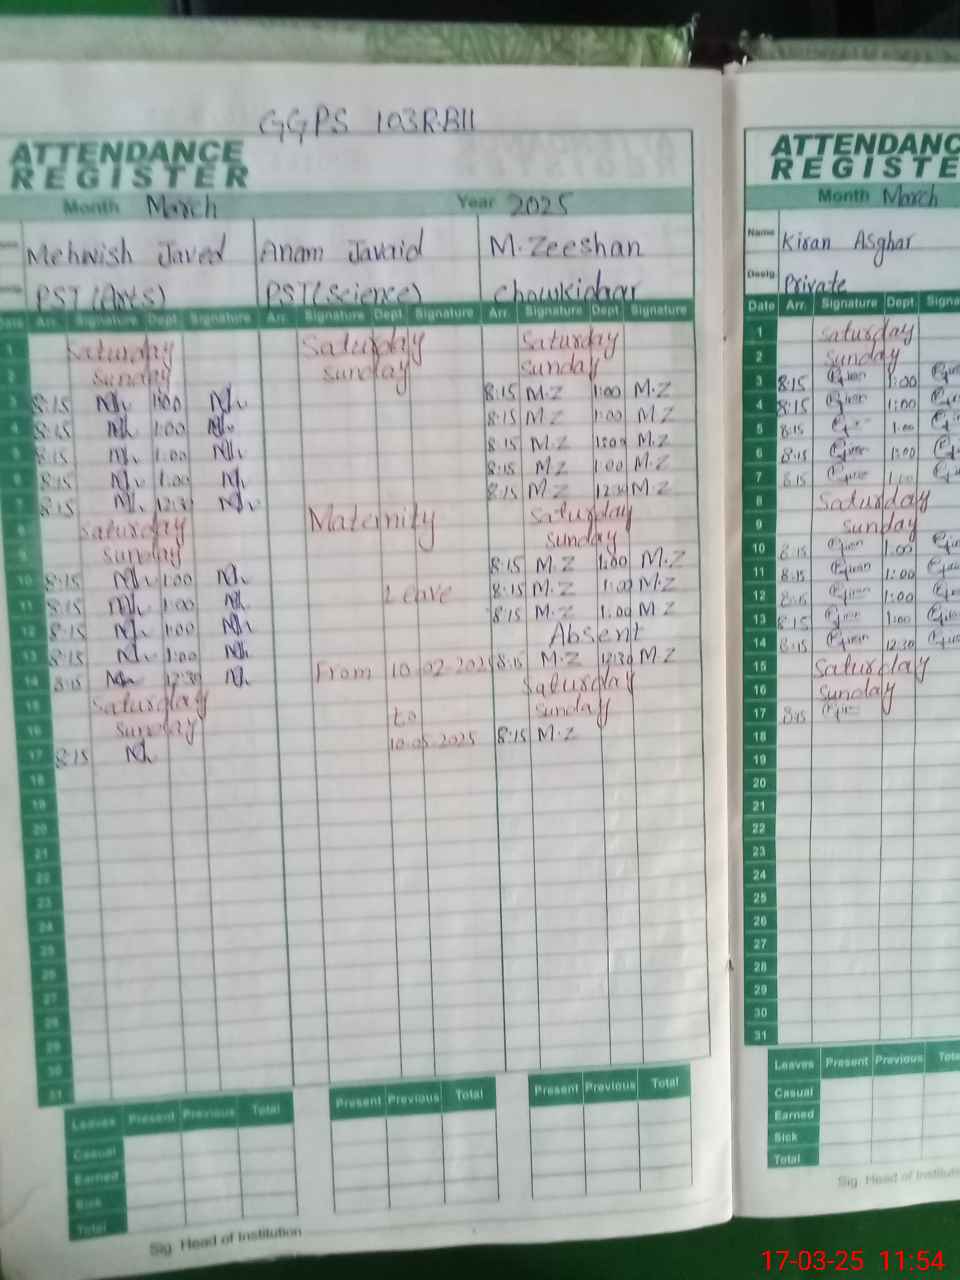 GGPS 103R.BII
ATTENDANCE
REGISTER
Month March Year 2025
Mehwish Javed Anam Javaid M.Zeeshan
PST (Arts) PST (Science) Chowkidaar
Date Arr. Signature Dept. Signature Arr. Signature Dept Signature Arr. Signature Dept Signature
1 Saturday Saturday Saturday
2 Sunday Sunday Sunday
3 8:15 1:00 8:15 M.Z 1:00 M.Z
4 8:15 1:00 8:15 M.Z 1:00 M.Z
5 8:15 1:00 8:15 M.Z 1:00 M.Z
6 8:15 1:00 8:15 M.Z 1:00 M.Z
7 8:15 12:30 8:15 M.Z 12:30 M.Z
8 Saturday Maternity Saturday
9 Sunday Sunday
10 8:15 1:00 8:15 M.Z 1:00 M.Z
11 8:15 1:00 Leave 8:15 M.Z 1:00 M.Z
12 8:15 1:00 8:15 M.Z 1:00 M.Z
13 8:15 1:00 Absent
14 8:15 12:30 From 10.02.2025 8:15 M.Z 12:30 M.Z
15 Saturday Saturday
16 Sunday to Sunday
17 8:15 10.05.2025 8:15 M.Z
18
19
20
21
22
23
24
25
26
27
28
29
30
31
Leaves Present Previous Total Present Previous Total Present Previous Total
Casual
Earned
Sick
Total
Sig. Head of Institution
ATTENDANC
REGISTE
Month March
Name Kiran Asghar
Desig. Private
Date Arr. Signature Dept Signa
1 Saturday
2 Sunday
3 8:15 1:00
4 8:15 1:00
5 8:15 1:00
6 8:15 1:00
7 8:15 1:00
8 Saturday
9 Sunday
10 8:15 1:00
11 8:15 1:00
12 8:15 1:00
13 8:15 1:00
14 8:15 12:30
15 Saturday
16 Sunday
17 8:15
18
19
20
21
22
23
24
25
26
27
28
29
30
31
Leaves Present Previous Tota
Casual
Earned
Sick
Total
Sig. Head of Institutio
17-03-25 11:54